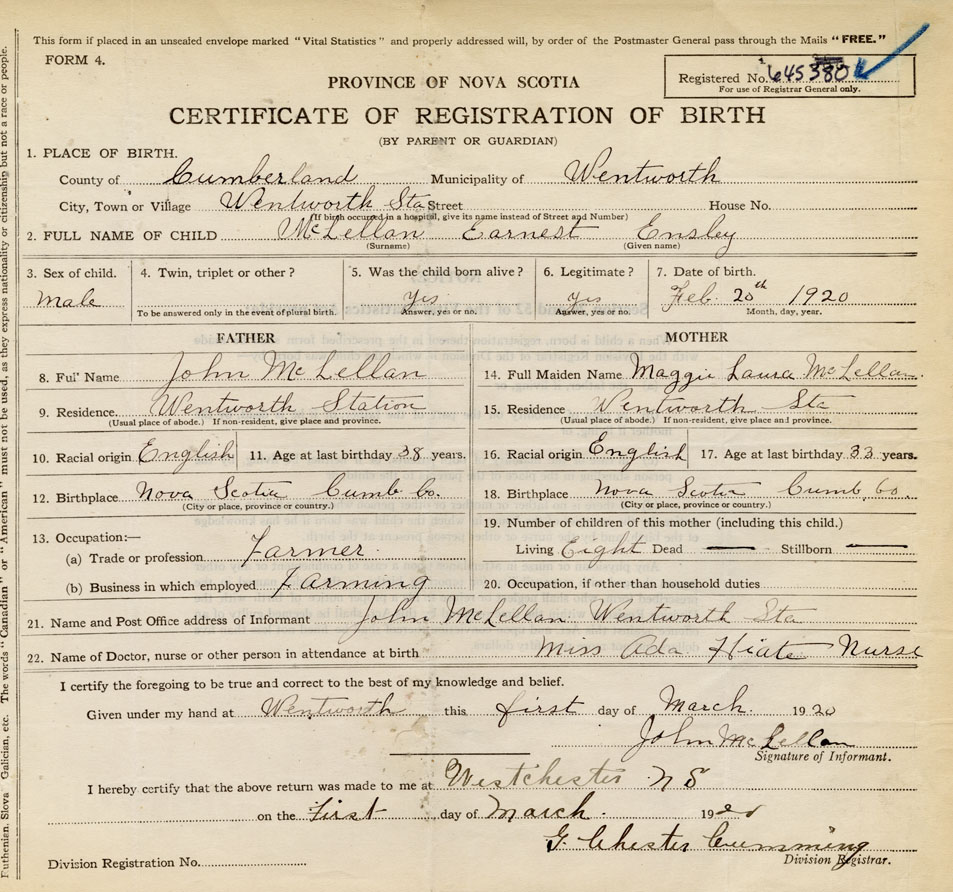 This form if placed in an unsealed envelope marked "Vital Statistics" and properly addressed will, by order of the Postmaster General pass through the Mails "FREE."
FORM 4.
Registered No. 645380
For use of Registrar General only.
PROVINCE OF NOVA SCOTIA
CERTIFICATE OF REGISTRATION OF BIRTH
(BY PARENT OR GUARDIAN)
1. PLACE OF BIRTH.
County of Cumberland Municipality of Wentworth
City, Town or Village Wentworth Sta Street House No.
(If birth occured in a hospital, give its name instead of Street and Number)
2. FULL NAME OF CHILD McLellan Earnest Ensley
(Surname) (Given name)
3. Sex of child. 4. Twin, triplet or other? 5. Was the child born alive? 6. Legitimate? 7. Date of birth.
Male Yis yis Feb. 20th 1920
To be answered only in the event of plural birth. Answer, yes or no. Answer, yes or no. Month, day, year.
FATHER MOTHER
8. Full Name John McLellan 14. Full Maiden Name Maggie Laura McLellan.
9. Residence. Wentworth Station 15. Residence Wentworth Sta
(Usual place of abode.) If non-resident, give place and province. (Usual place of abode.) If non-resident, give place and province.
10. Racial origin English 11. Age at last birthday 38 years. 16. Racial origin English 17. Age at last birthday 33 years.
12. Birthplace Nova Scotia Cumb Co. 18. Birthplace Nova Scotia Cumb. Co.
(City or place, province or country.) (City or place, province or country.)
19. Number of children of this mother (including this child.)
13. Occupation:—
(a) Trade or profession Farmer. Living Eight Dead — Stillborn —
(b) Business in which employed Farming 20. Occupation, if other than household duties
21. Name and Post Office address of Informant John McLellan Wentworth Sta
22. Name of Doctor, nurse or other person in attendance at birth Miss Ada Nurse
I certify the foregoing to be true and correct to the best of my knowledge and belief.
Given under my hand at Wentworth this first day of March. 1920
John McLellan
Signature of Informant.
I hereby certify that the above return was made to me at Westchester N S
on the First day of March. 1920
G. Chester Cumming
Division Registrar.
Division Registration No.
Galician, etc. The words "Canadian" or "American" must not be used, as they express nationality or citizenship but not a race or people.